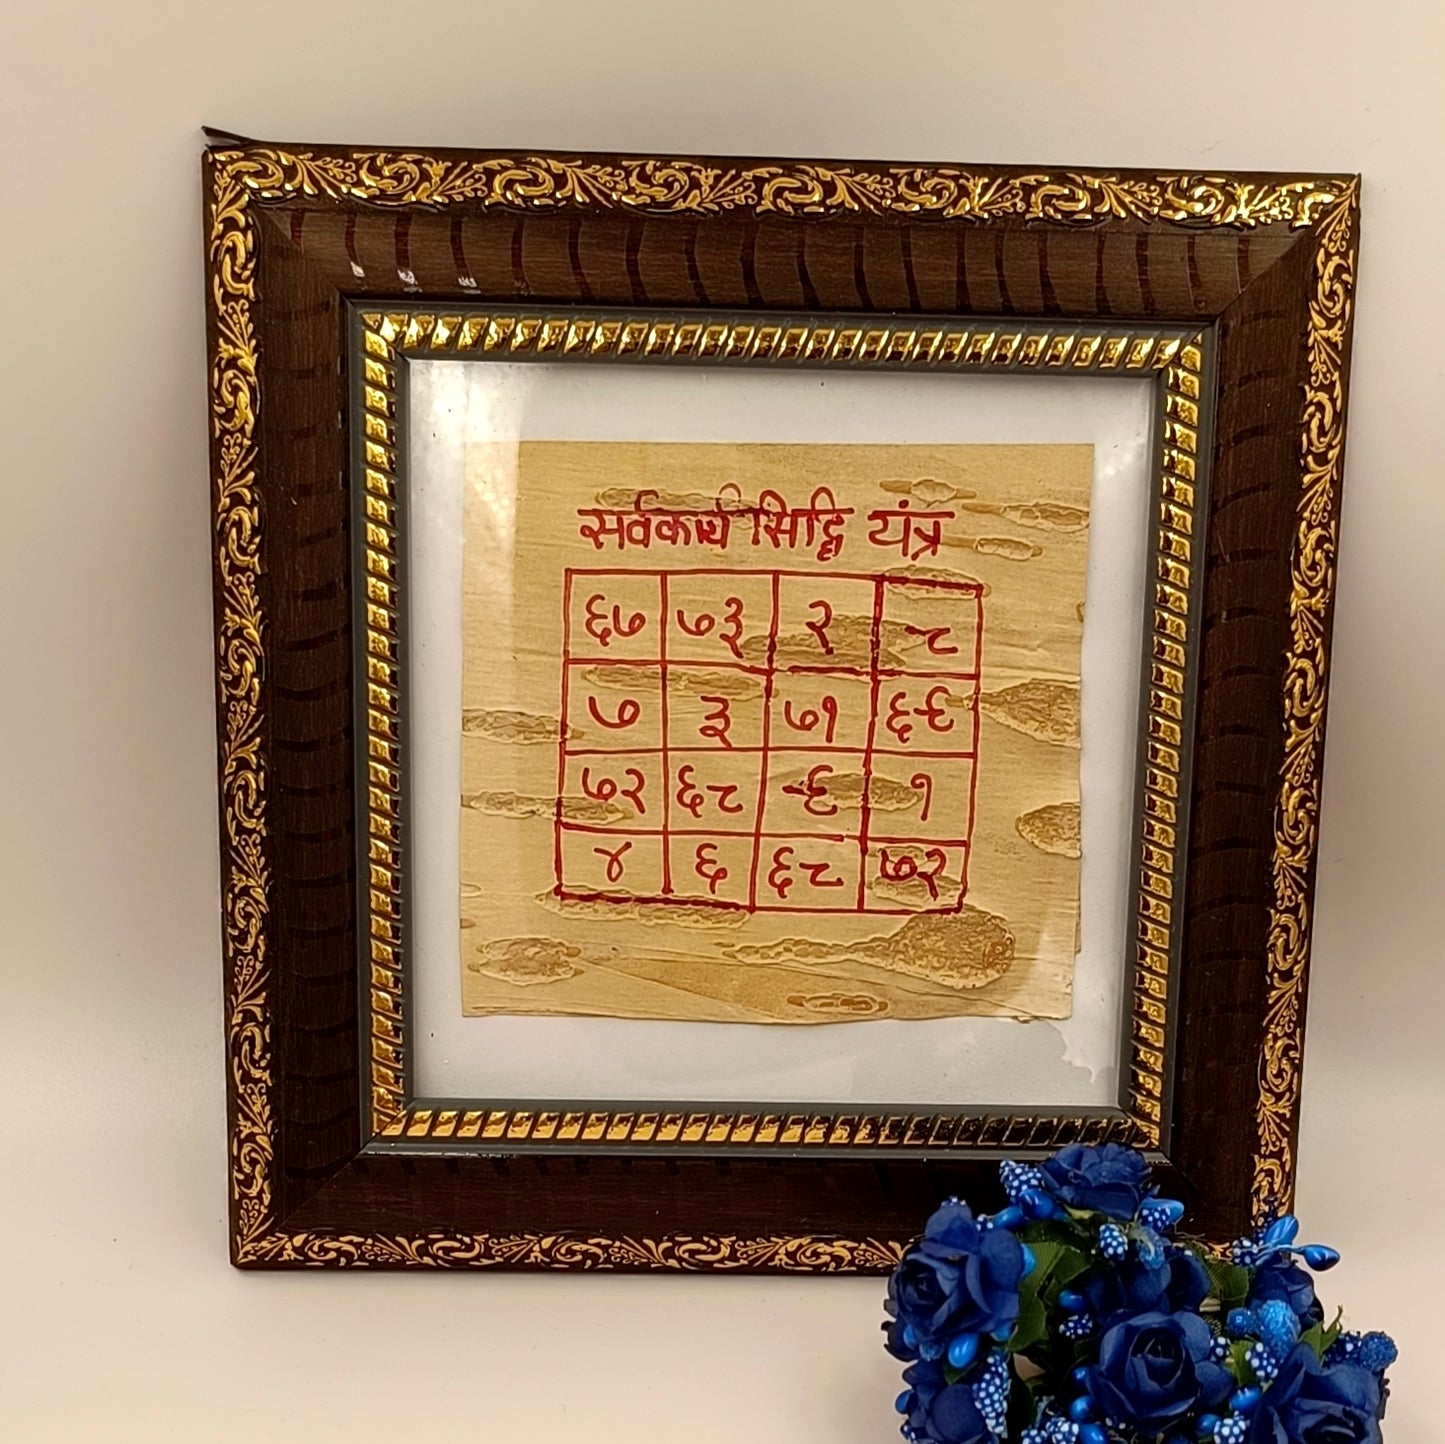 सर्वकार्य सिद्धि यंत्र
६७ ७३ २ ८
७ ३ ७१ ६९
७२ ६८ ९ १
४ ६ ६८ ७२